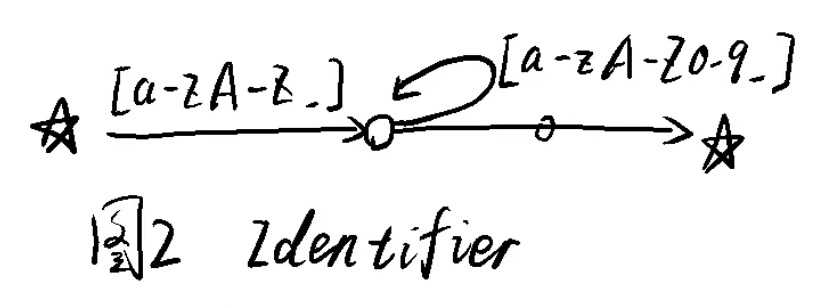 [a-zA-Z_]
[a-zA-Z0-9_]
图2 Identifier